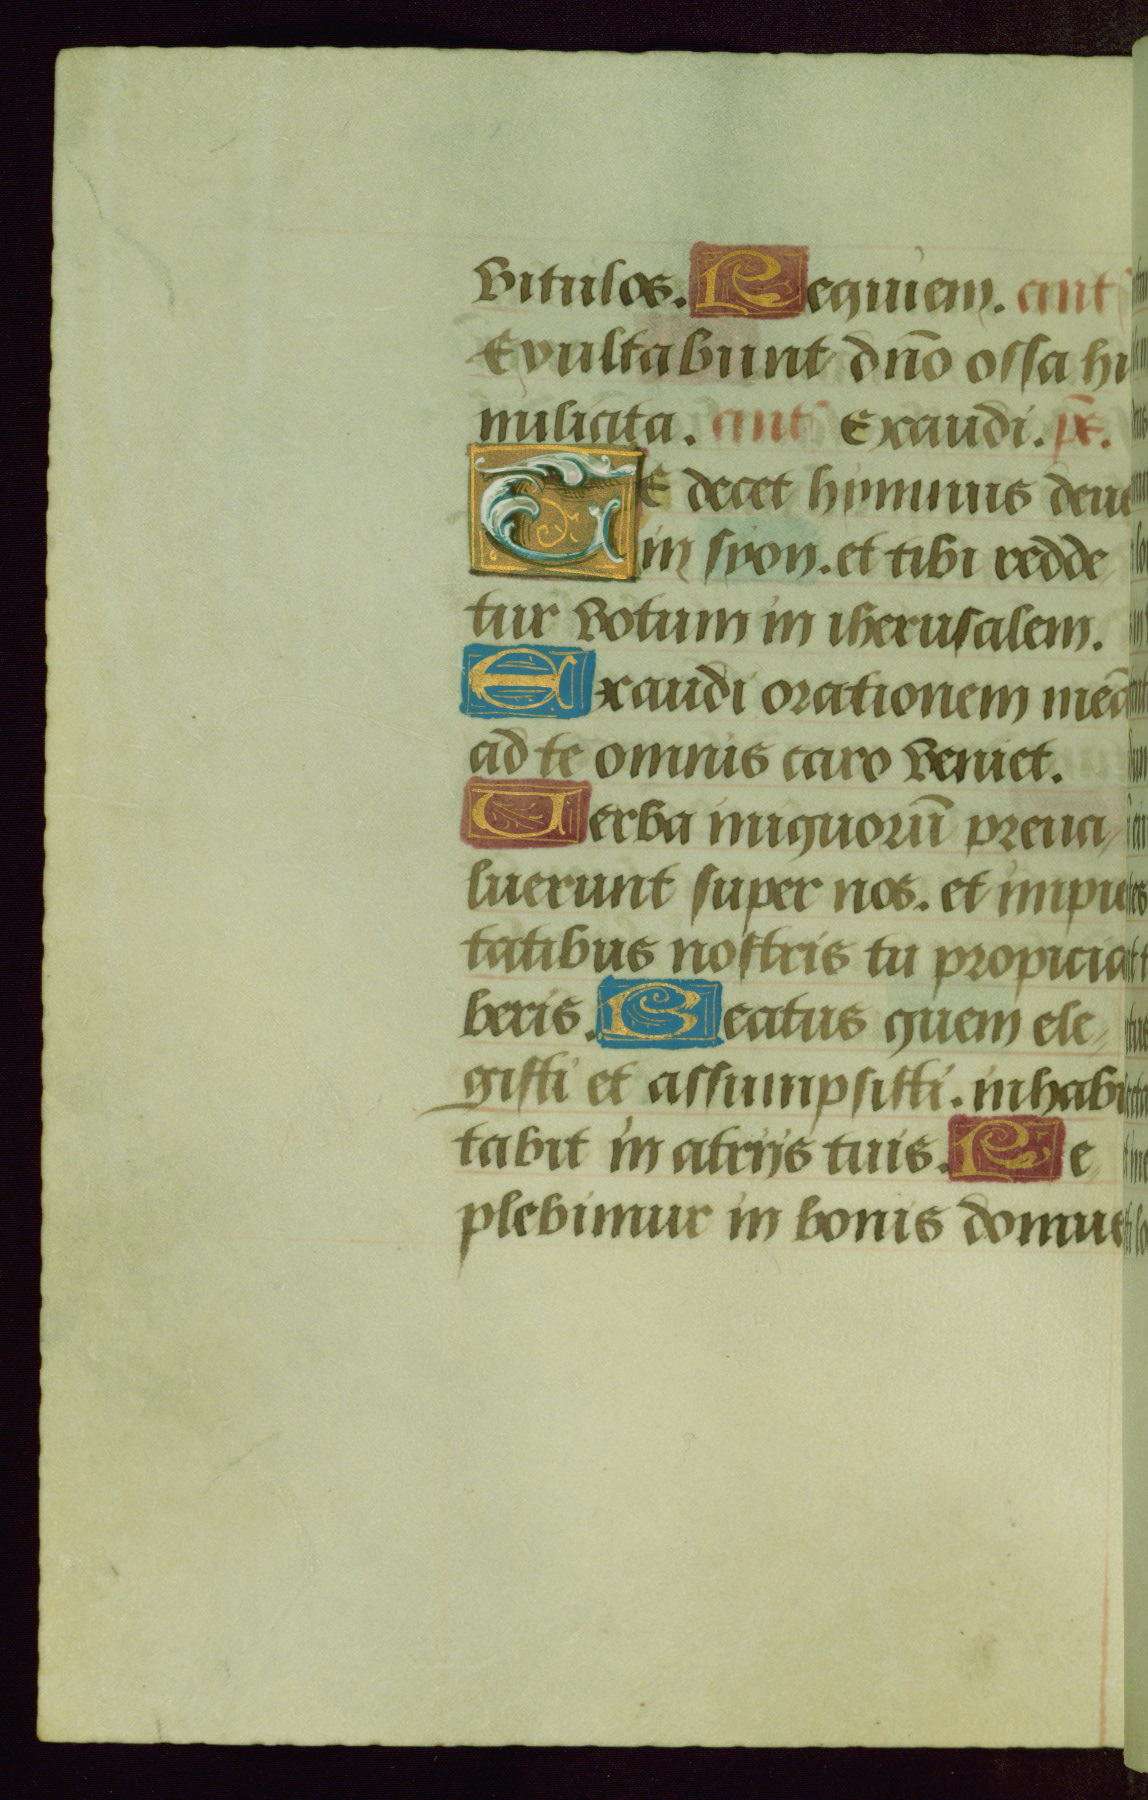 vitulos. Requiem. ant
Exultabunt dño ossa hu
miliata. ant Exaudi. ps.
TE decet hymnus deus
in syon. et tibi redde
tur votum in iherusalem.
Exaudi orationem meā
ad te omnis caro veniet.
Verba iniquorū preua
luerunt super nos. et impie
tatibus nostris tu propicia
beris. Beatus quem ele
gisti et assumpsisti. inhabi
tabit in atrijs tuis. Re
plebimur in bonis domus